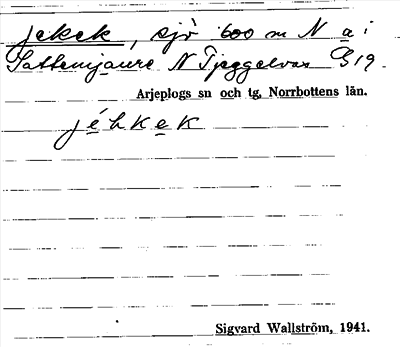 jekek, sjö 600 m N a i
Sattemjaure N Tjeggelvas G 19.
Arjeplogs sn och tg, Norrbottens län.
jéhkek
Sigvard Wallström, 1941.